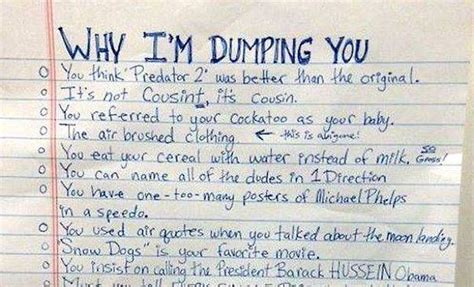 WHY I'M DUMPING YOU
You think 'Predator 2' was better than the original.
It's not Cousint, it's Cousin.
You referred to your cockatoo as your baby.
The air brushed clothing ← this is a bigone!
You eat your cereal with water instead of milk. SO Gross!
You can name all of the dudes in 1 Direction
You have one-too-many posters of Michael Phelps
in a speedo.
You used air quotes when you talked about the moon landing.
"Snow Dogs" is your favorite movie.
You insist on calling the President Barack HUSSEIN Obama